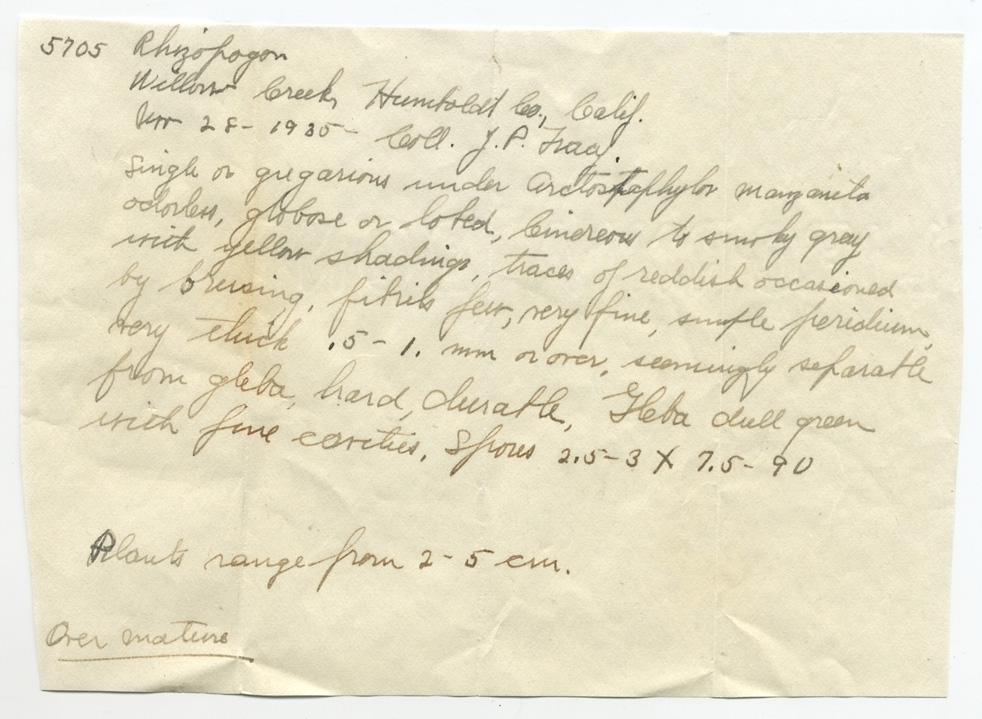 5705 Rhizopogon
Willow Creek, Humboldt Co., Calif.
Nov 28 - 1935 - Coll. J. P. Tracy.
Single or gregarious under Arctostaphylos manzanita
odorless, globose or lobed, Cinereous to smoky gray
with yellow shadings, traces of reddish occasioned
by bruising, fibrils few, very fine, simple peridium,
very thick .5 - 1. mm or over, seemingly separable
from gleba, hard, durable, Gleba dull green
with fine cavities. Spores 2.5-3 X 7.5-9 U
Plants range from 2 - 5 cm.
Over mature